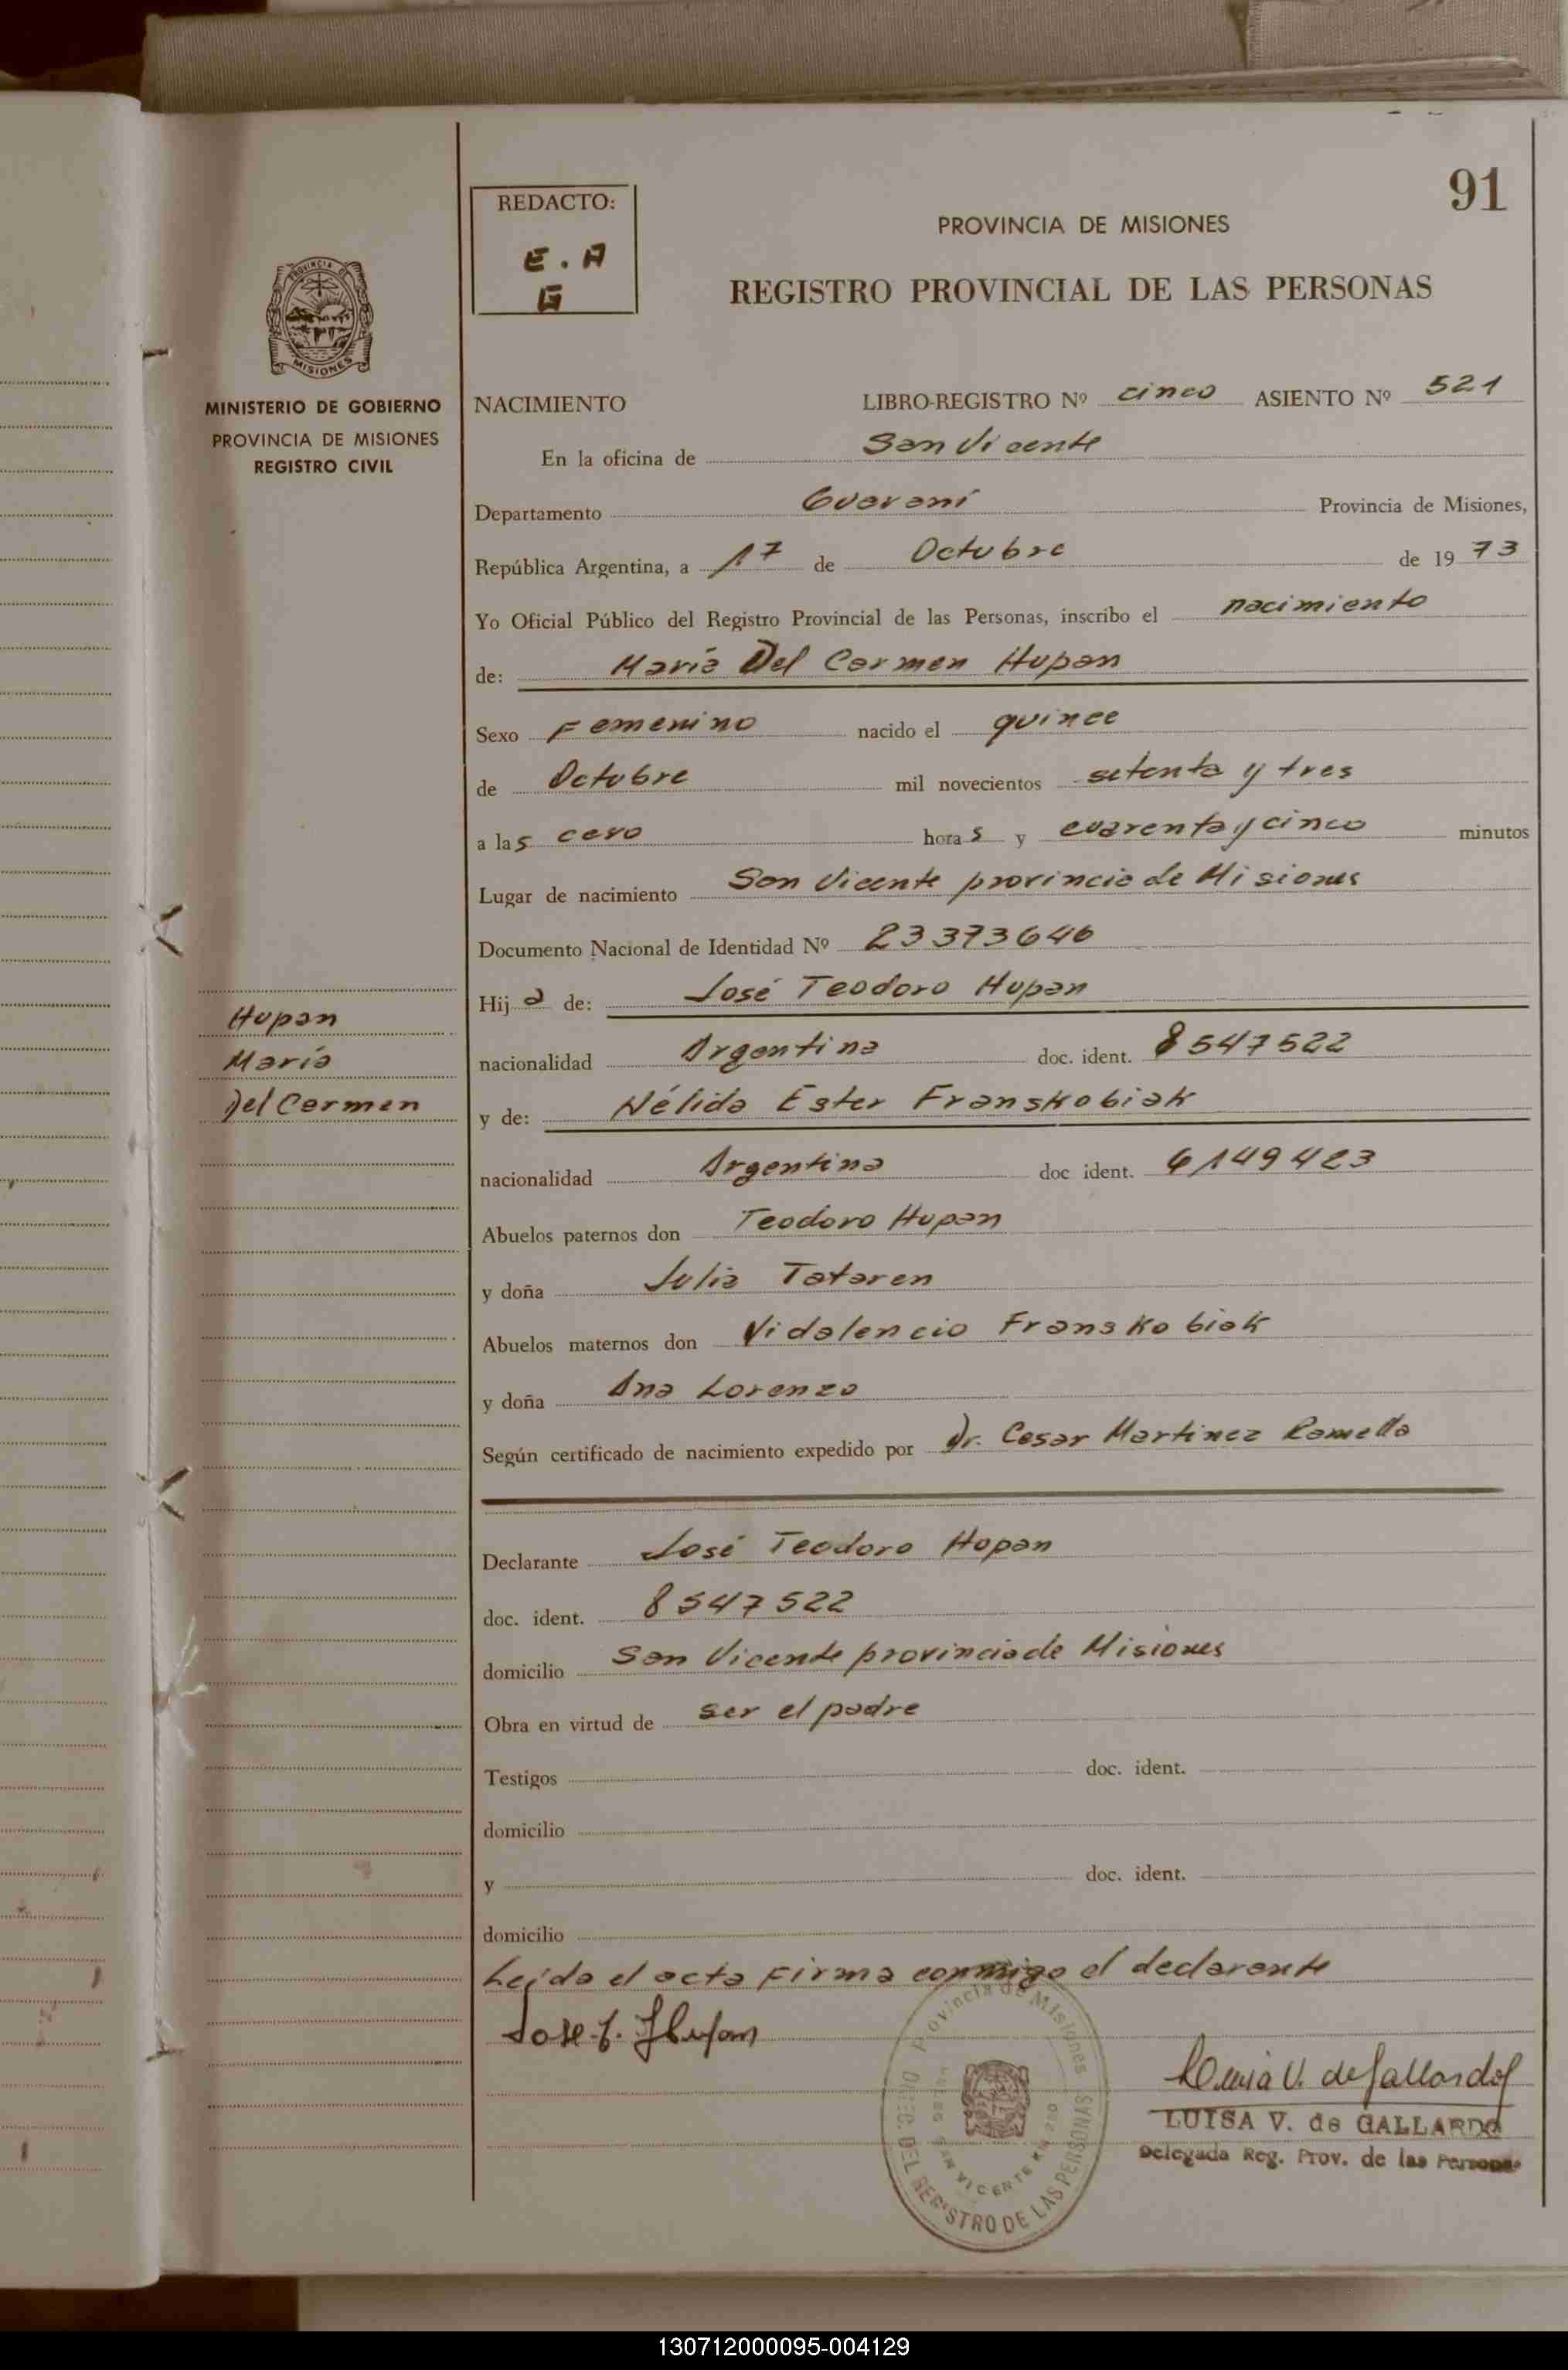 91
REDACTO:
E. A
G
PROVINCIA DE MISIONES
REGISTRO PROVINCIAL DE LAS PERSONAS
PROVINCIA DE
MISIONES
MINISTERIO DE GOBIERNO
PROVINCIA DE MISIONES
REGISTRO CIVIL
NACIMIENTO LIBRO-REGISTRO Nº cinco ASIENTO Nº 521
En la oficina de San Vicente
Departamento Guaraní Provincia de Misiones,
República Argentina, a 17 de Octubre de 1973
Yo Oficial Público del Registro Provincial de las Personas, inscribo el nacimiento
de: María Del Carmen Hupan
Sexo Femenino nacido el quince
de Octubre mil novecientos setenta y tres
a las cero horas y cuarenta y cinco minutos
Lugar de nacimiento San Vicente provincia de Misiones
Documento Nacional de Identidad Nº 23373646
Hija de: José Teodoro Hupan
Hupan
María
Del Carmen
nacionalidad Argentina doc. ident. 8547522
y de: Nélida Ester Franskobiak
nacionalidad Argentina doc ident. 6149423
Abuelos paternos don Teodoro Hupan
y doña Julia Tataren
Abuelos maternos don Vidalencio Franskobiak
y doña Ana Lorenzo
Según certificado de nacimiento expedido por Dr. Cesar Martinez Ramella
Declarante José Teodoro Hupan
doc. ident. 8547522
domicilio San Vicente provincia de Misiones
Obra en virtud de ser el padre
Testigos doc. ident.
domicilio
y doc. ident.
domicilio
Leída el acta firma conmigo el declarante
Jose T. Hupan
Provincia de Misiones
DIREC. DEL REGISTRO DE LAS PERSONAS
SAN VICENTE
Luisa V. de Gallardo
LUISA V. de GALLARDO
Delegada Reg. Prov. de las Personas
130712000095-004129